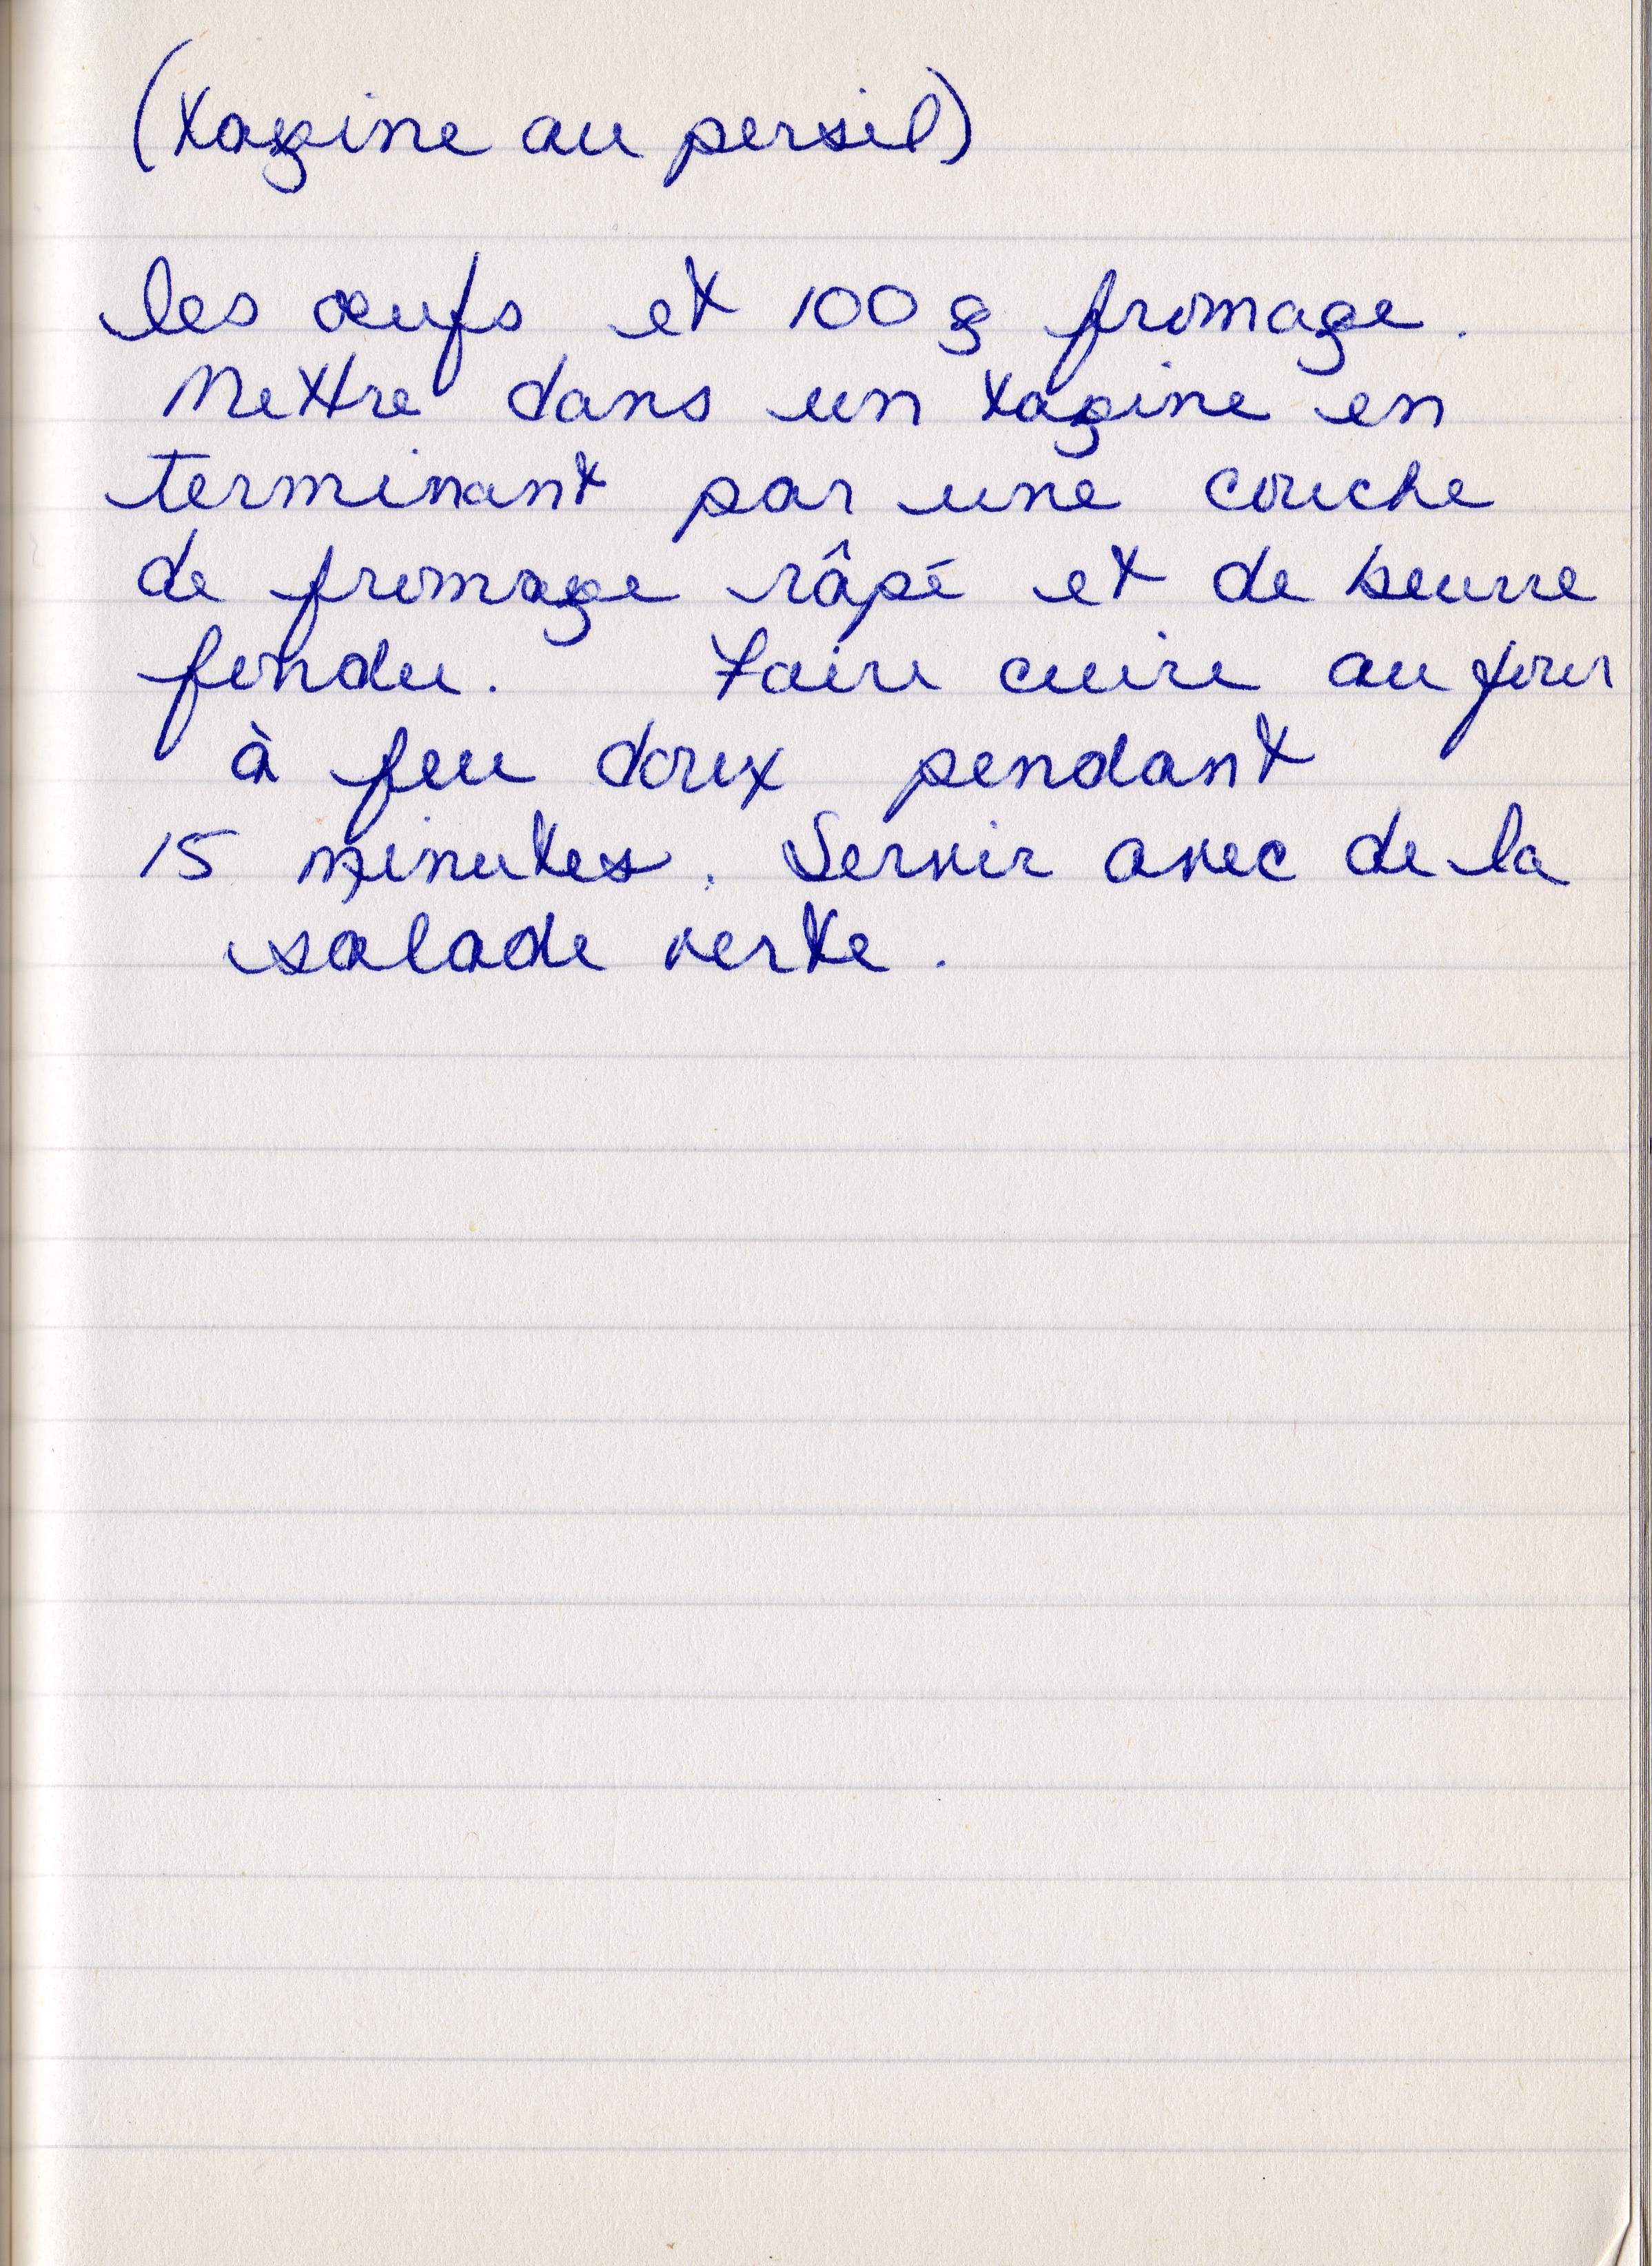 (tagine au persil)
les œufs et 100 g fromage.
Mettre dans un tagine en
terminant par une couche
de fromage râpé et de beurre
fondu. Faire cuire au four
à feu doux pendant
15 minutes. Servir avec de la
salade verte.